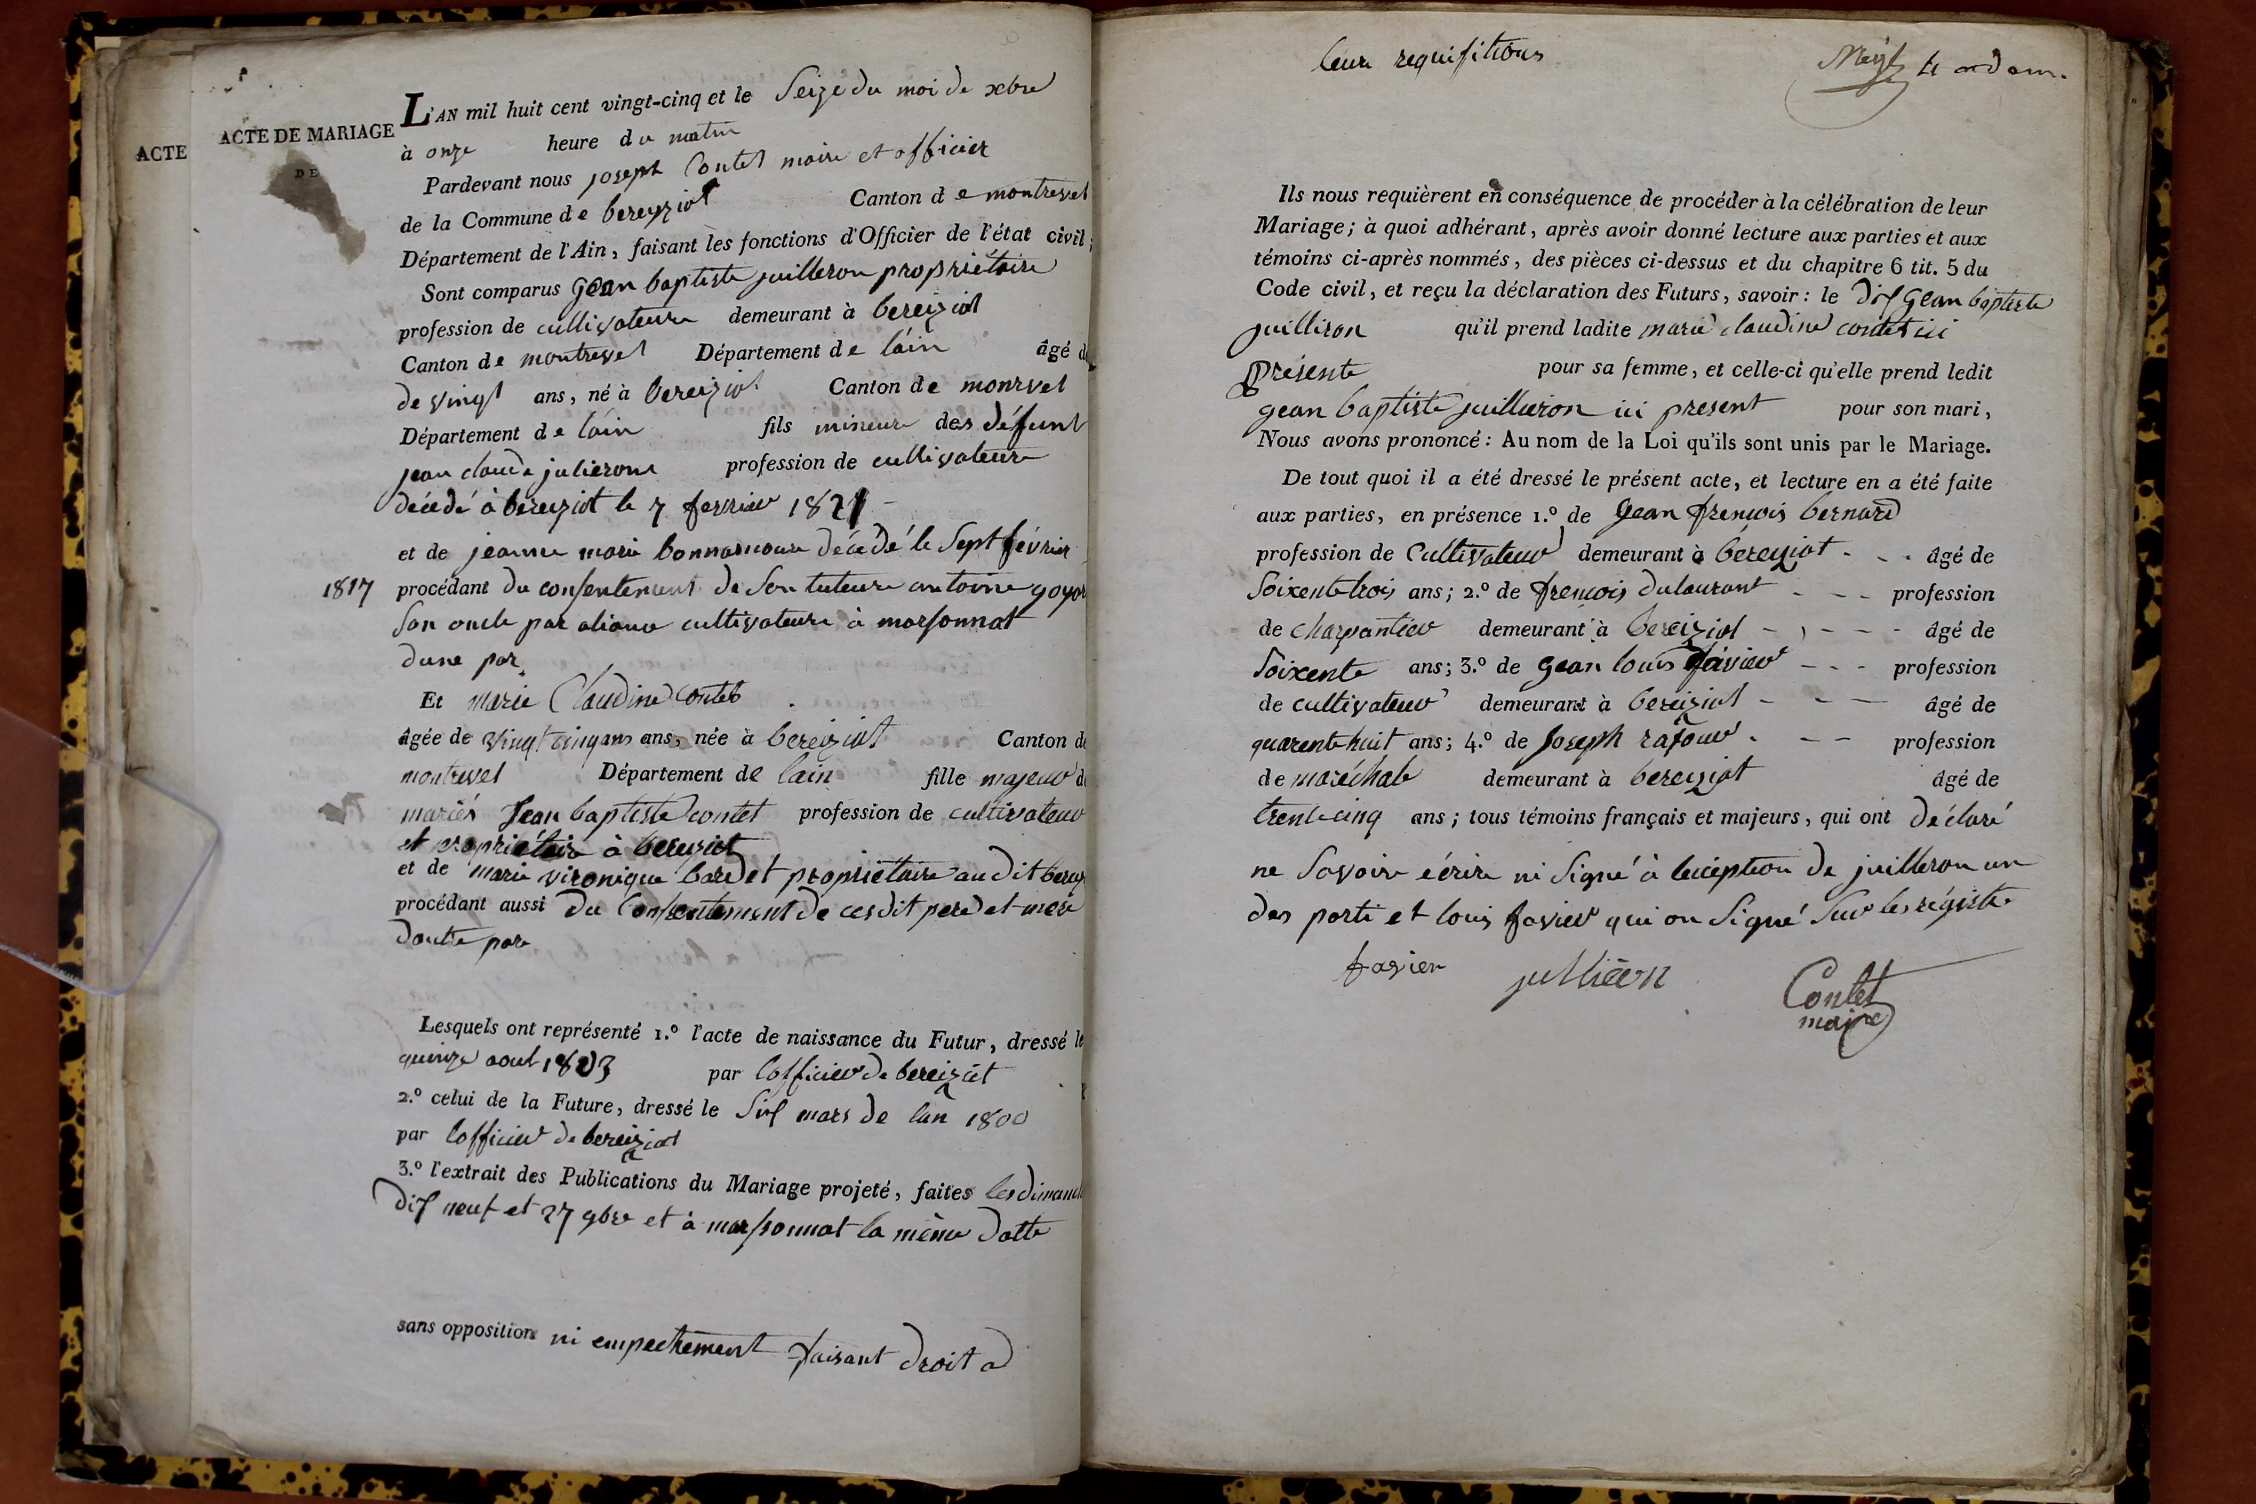 ACTE
ACTE DE MARIAGE
DE
L'AN mil huit cent vingt-cinq et le Seize du moi de xbre
à onze heure du matin
Pardevant nous joseph Contet maire et officier
de la Commune de bereyziat Canton de montrevel
Département de l'Ain, faisant les fonctions d'Officier de l'état civil;
Sont comparus Gean baptiste juilleron propriétaire
profession de cultivateure demeurant à bereiziat
Canton de montrevel Département de lain âgé d
de vingt ans, né à bereiziat Canton de monrvel
Département de lain fils mineure des défunt
jean claude julieron profession de cultivateure
décédé à bereiziat le 7 fevrier
et de jeanne marie bonnamour décédé le Sept février
1817 procédant du consentement de Son tuteure antoine goyon
Son oncle par aliance cultivateure à marsonnat
dune par
Et marie Claudine Contet
âgée de vingt cinq ans ans, née à bereiziat Canton de
montrevel Département de lain fille majeur d
mariés Jean baptiste contet profession de cultivateur
et propriétaire à bereiziat
et de marie vironique bardet propriétaire au dit berey
procédant aussi du Consentement de ces dit pere et mere
dautre par
Lesquels ont représenté 1.º l'acte de naissance du Futur, dressé le
quinze aout 1803 par lofficier de bereiziat
2.º celui de la Future, dressé le Six mars de lan 1800
par lofficier de bereiziat
3.º l'extrait des Publications du Mariage projeté, faites les dimanch
dix neuf et 27 9bre et à marsonnat la même datte
sans opposition ni empechement faisant droit a
leure requisitions
Ils nous requièrent en conséquence de procéder à la célébration de leur
Mariage; à quoi adhérant, après avoir donné lecture aux parties et aux
témoins ci-après nommés, des pièces ci-dessus et du chapitre 6 tit. 5 du
Code civil, et reçu la déclaration des Futurs, savoir: le dit Gean baptiste
juilliron qu'il prend ladite marie claudine contet ici
présente pour sa femme, et celle-ci qu'elle prend ledit
gean baptiste juillieron ici present pour son mari,
Nous avons prononcé: Au nom de la Loi qu'ils sont unis par le Mariage.
De tout quoi il a été dressé le présent acte, et lecture en a été faite
aux parties, en présence 1.º de Gean frençois bernard
profession de Cultivateur demeurant à béreyziat - - - âgé de
Soixente trois ans; 2.º de frençois dulaurant - - - profession
de charpantier demeurant à bereiziat - - - - âgé de
Soixente ans; 3.º de Gean louis favier - - - profession
de cultivateur demeurant à bereiziat - - - âgé de
quarente huit ans; 4.º de Joseph rafour - - - profession
de maréchale demeurant à bereiziat âgé de
trente cinq ans; tous témoins français et majeurs, qui ont déclaré
ne Savoire écrire ni Signé à lexception de juilleron un
des parti et louis favier qui on Signé Sur les régistre
favier jullieron Contet
maire